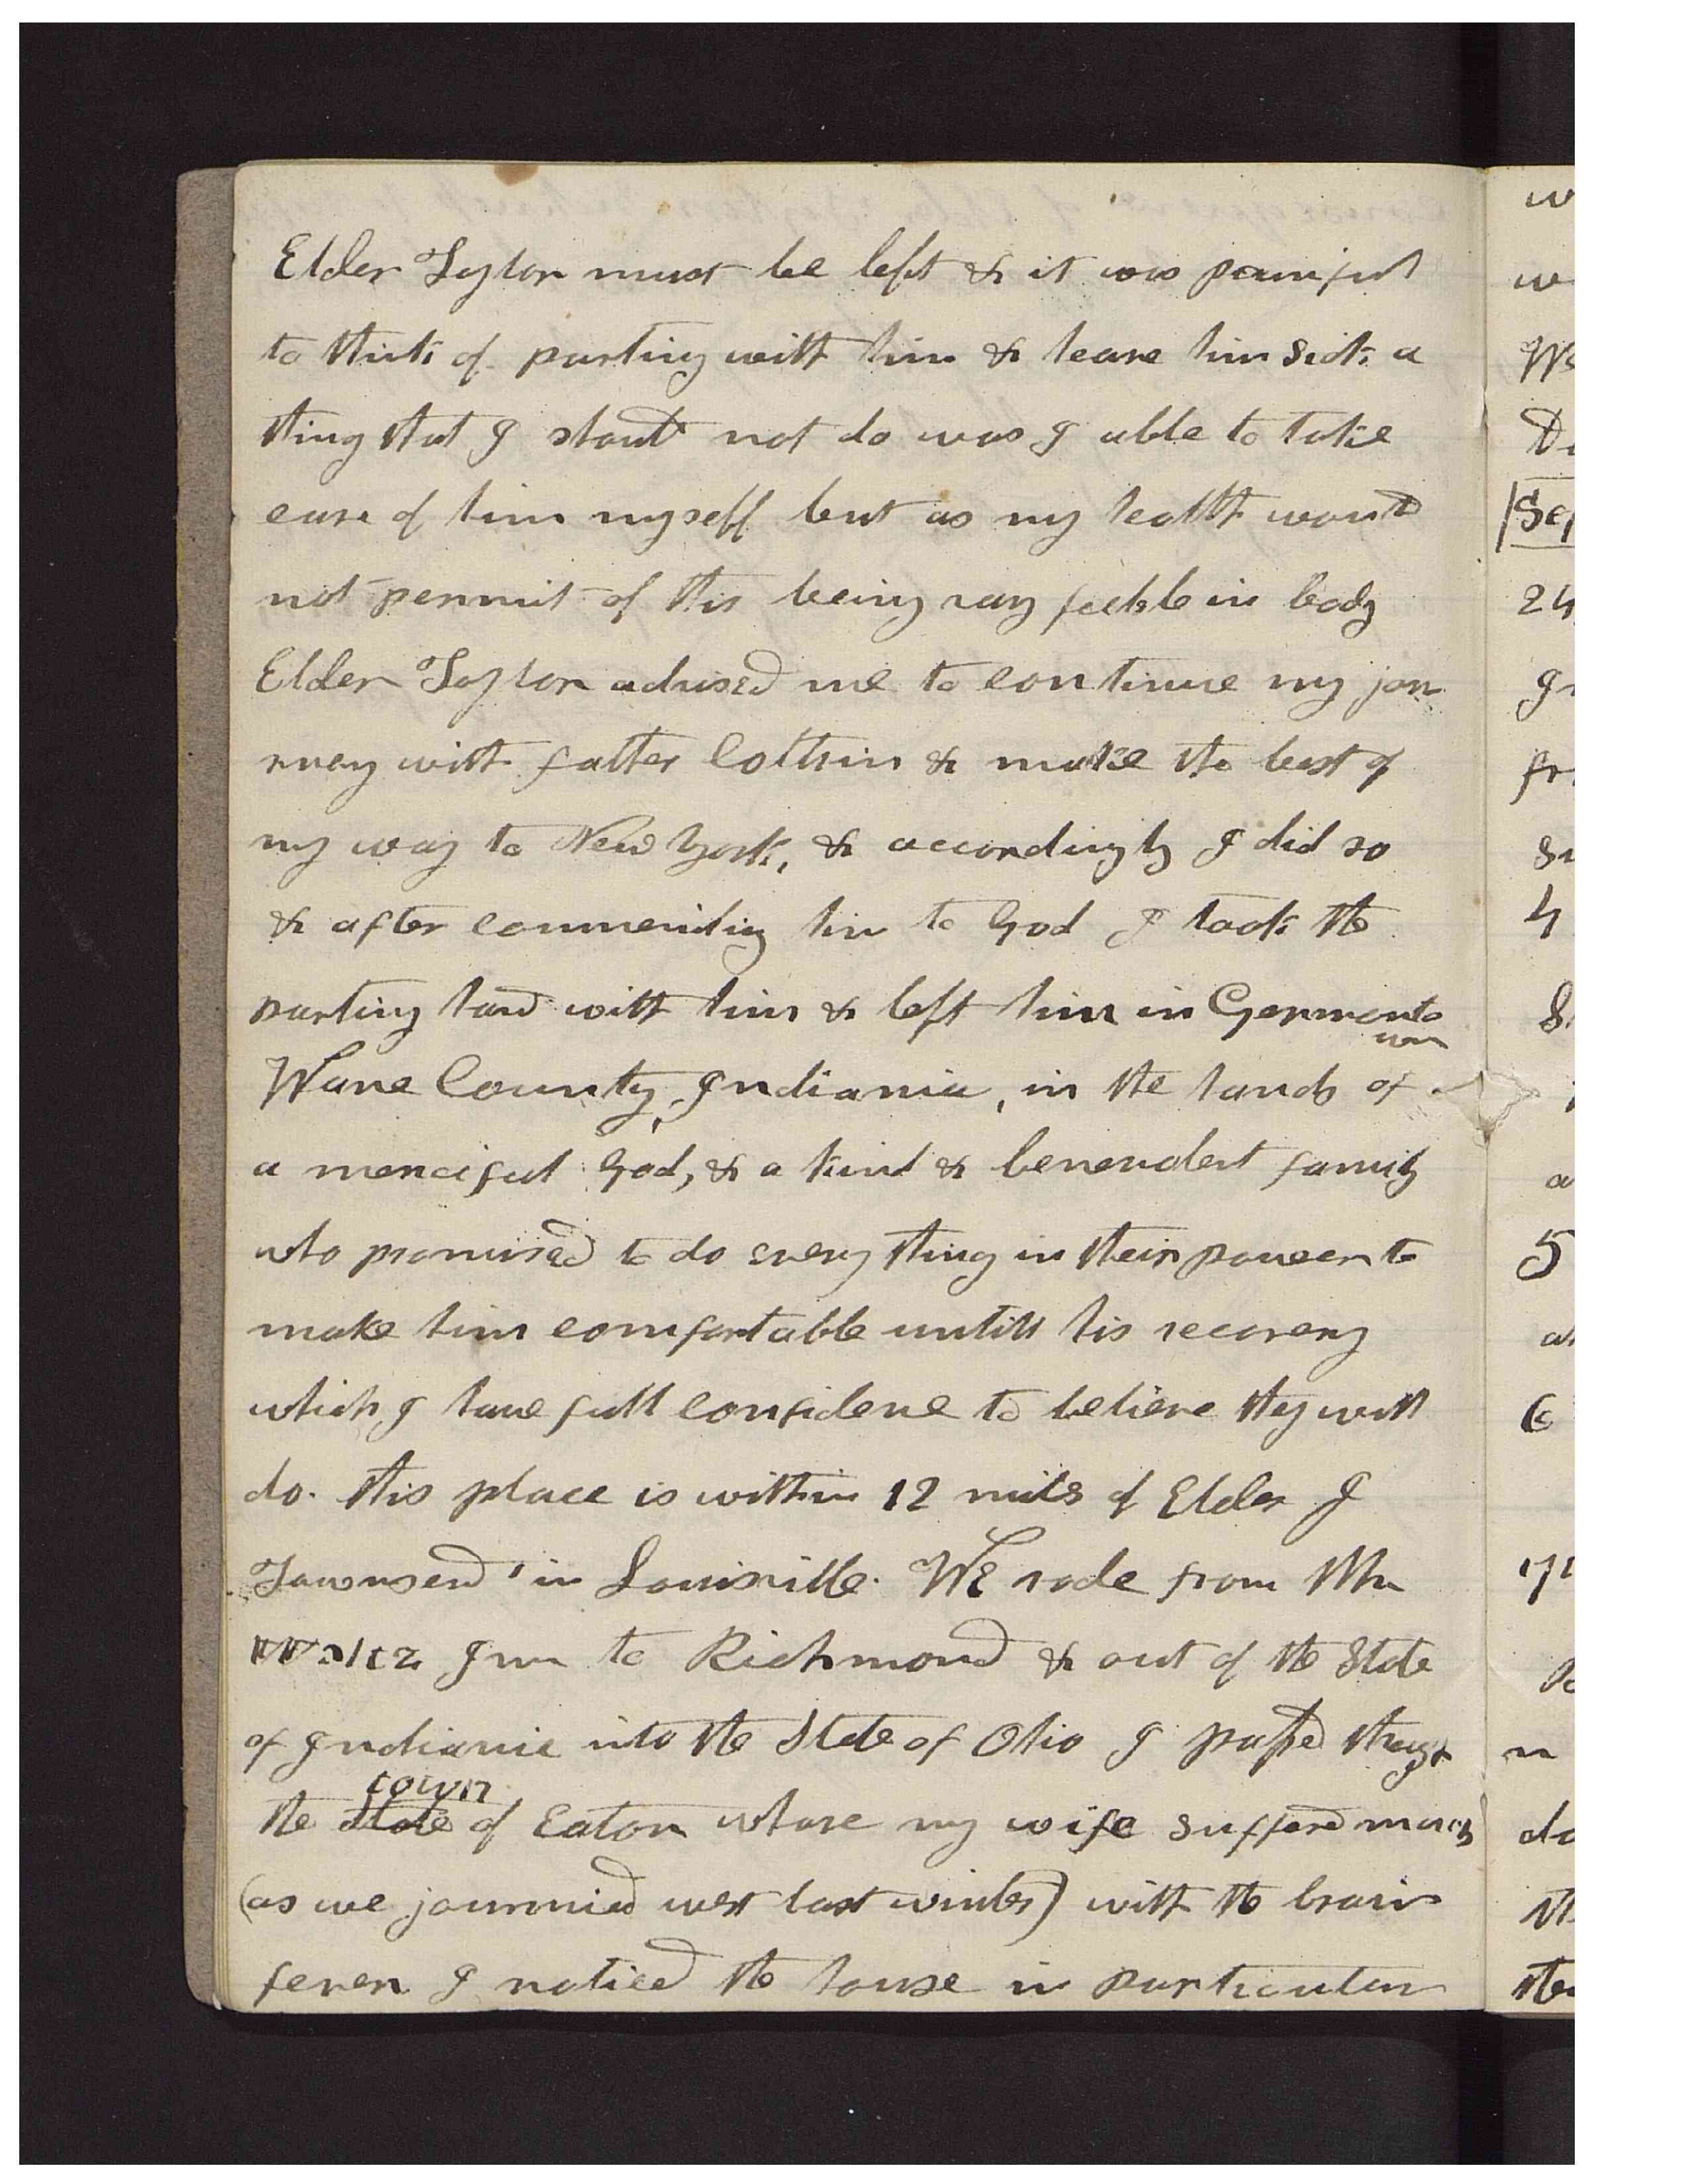 Elder Taylor must be left & it was painful
to think of parting with him & leave him sick a
thing that I should not do was I able to take
care of him myself but as my health would
not permit of this being vary feeble in body
Elder Taylor advised me to continue my jou
rney with father Coltrin & make the best of
my way to New York, & accordingly I did so
& after commending him to God I took the
parting hand with him & left him in Germanto
wn
Wane County, Indiania, in the hands of
a merciful God, & a kind & benevolent family
who promised to do every thing in their power to
make him comfortable untill his recovery
which I have full confidence to believe they will
do. This place is within 12 miles of Elder J
Townsend in Louisville. We rode from Mr
Waltz Inn to Richmond & out of the State
of Indiania into the State of Ohio I passed through
town
the State of Eaton whare my wife suffered much
(as we journied west last winter) with the brain
fever I noticed the house in particular
w
w
We
Sep
24
fr
4
5
a
6
17
n
do
the